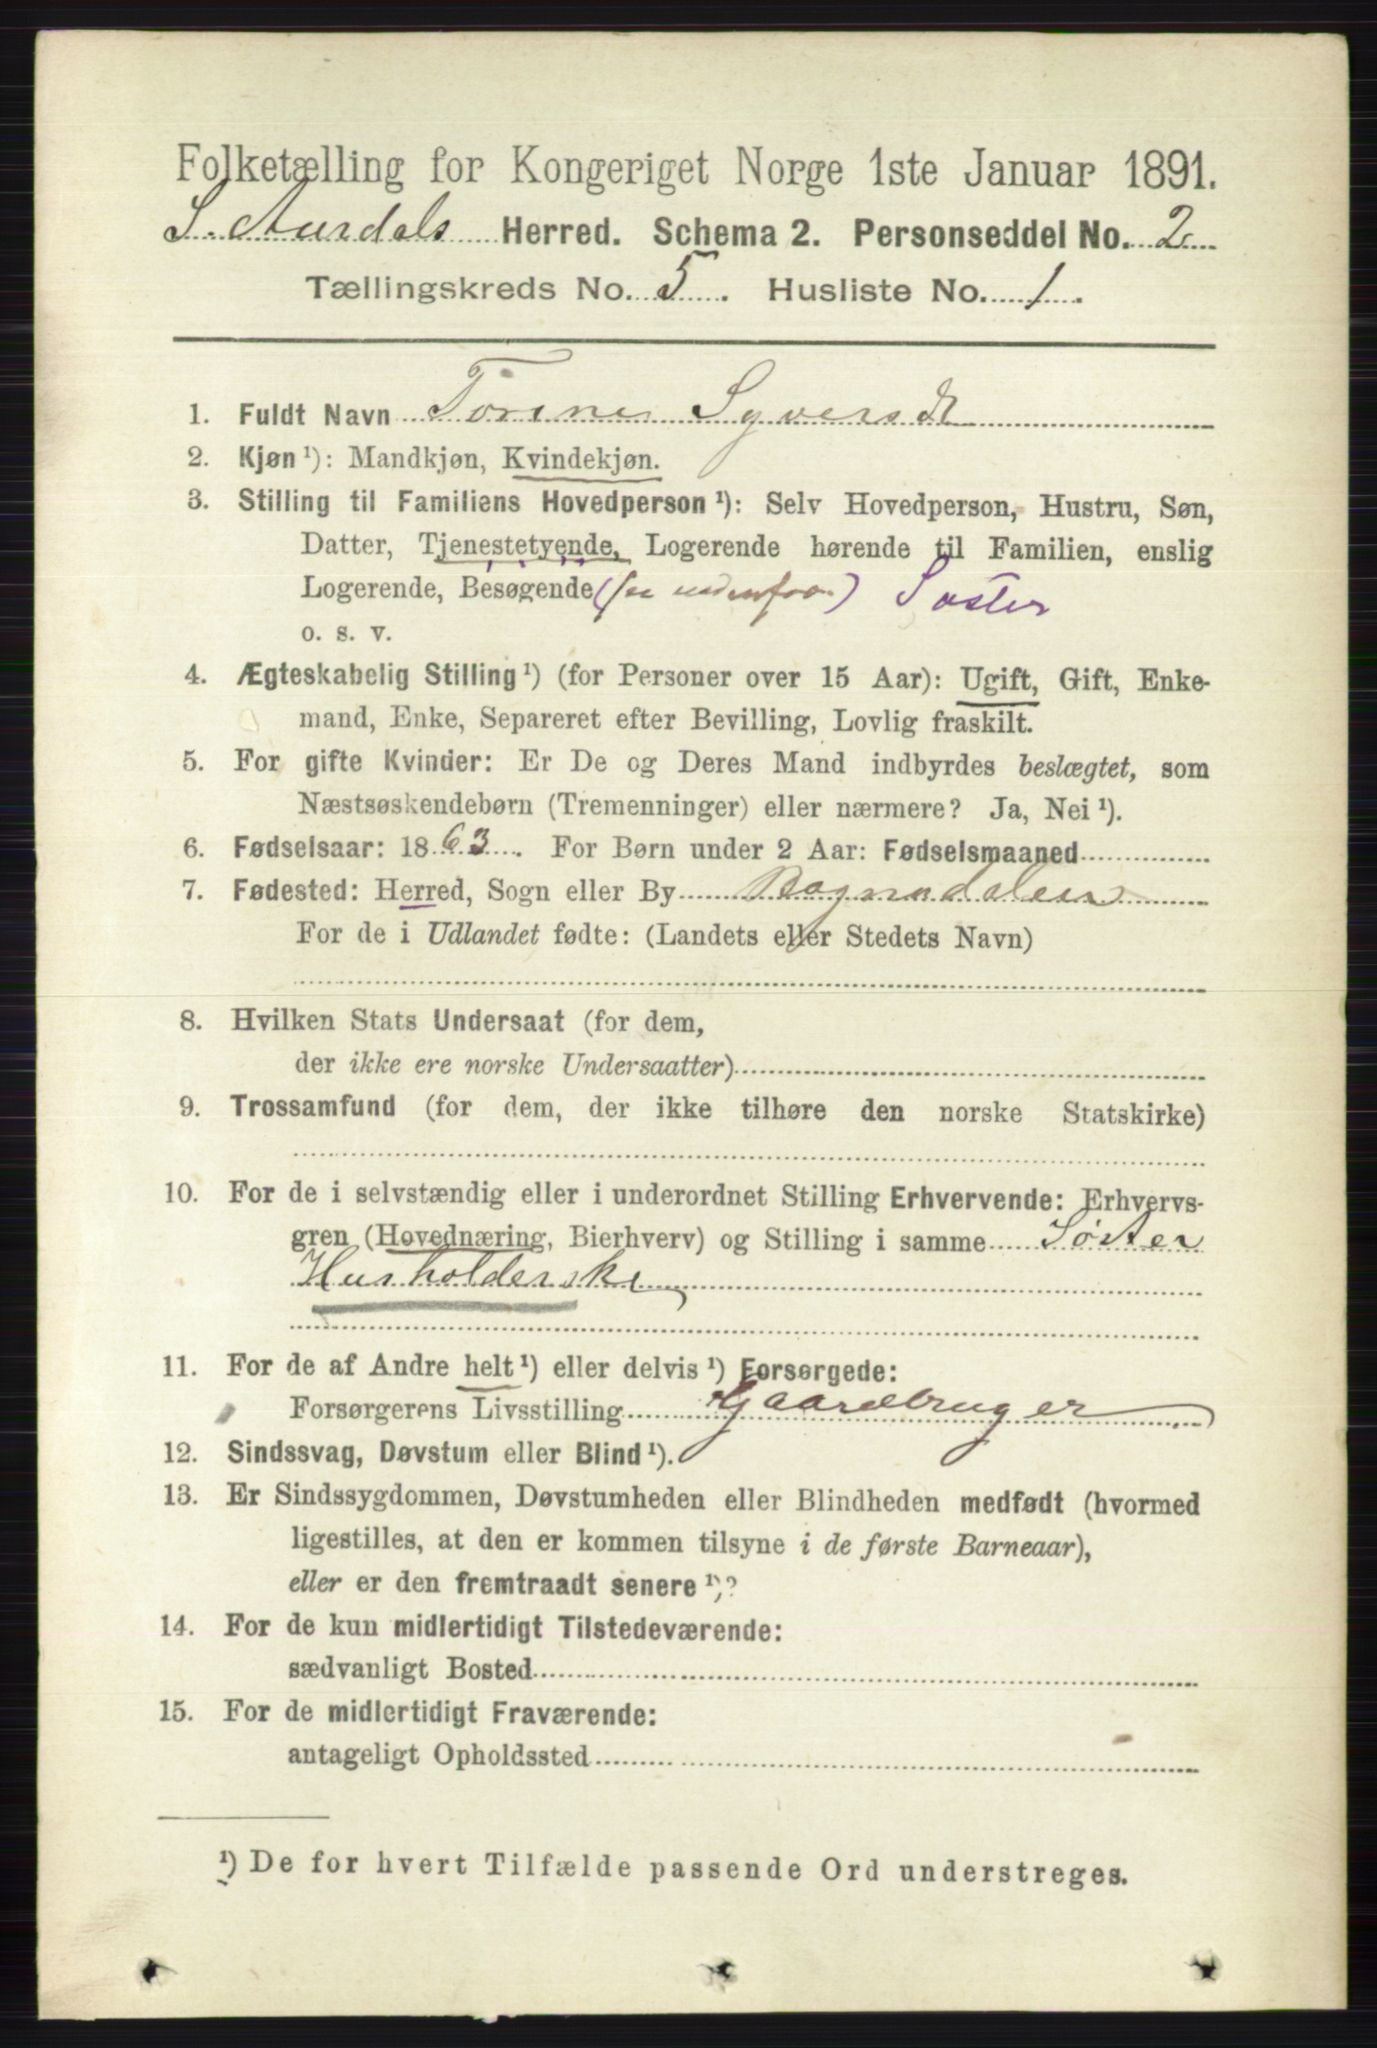 Folketælling for Kongeriget Norge 1ste Januar 1891.
S. Aurdals Herred. Schema 2. Personseddel No. 2
Tællingskreds No. 5. Husliste No. 1.
1. Fuldt Navn Torine Syversdt
2. Kjøn ¹): Mandkjøn, Kvindekjøn.
3. Stilling til Familiens Hovedperson ¹): Selv Hovedperson, Hustru, Søn,
Datter, Tjenestetyende, Logerende hørende til Familien, enslig
Logerende, Besøgende (se nedenfor) Søster
o. s. v.
4. Ægteskabelig Stilling ¹) (for Personer over 15 Aar): Ugift, Gift, Enke-
mand, Enke, Separeret efter Bevilling, Lovlig fraskilt.
5. For gifte Kvinder: Er De og Deres Mand indbyrdes beslægtet, som
Næstsøskendebørn (Tremenninger) eller nærmere? Ja, Nei ¹).
6. Fødselsaar: 1863. For Børn under 2 Aar: Fødselsmaaned
7. Fødested: Herred, Sogn eller By Bagnadalen
For de i Udlandet fødte: (Landets eller Stedets Navn)
8. Hvilken Stats Undersaat (for dem,
der ikke ere norske Undersaatter)
9. Trossamfund (for dem, der ikke tilhøre den norske Statskirke)
10. For de i selvstændig eller i underordnet Stilling Erhvervende: Erhvervs-
gren (Hovednæring, Bierhverv) og Stilling i samme Søster
Husholderske
11. For de af Andre helt ¹) eller delvis ¹) Forsørgede:
Forsørgerens Livsstilling Gaardbruger
12. Sindssvag, Døvstum eller Blind ¹).
13. Er Sindssygdommen, Døvstumheden eller Blindheden medfødt (hvormed
ligestilles, at den er kommen tilsyne i de første Barneaar),
eller er den fremtraadt senere ¹)?
14. For de kun midlertidigt Tilstedeværende:
sædvanligt Bosted
15. For de midlertidigt Fraværende:
antageligt Opholdssted
¹) De for hvert Tilfælde passende Ord understreges.